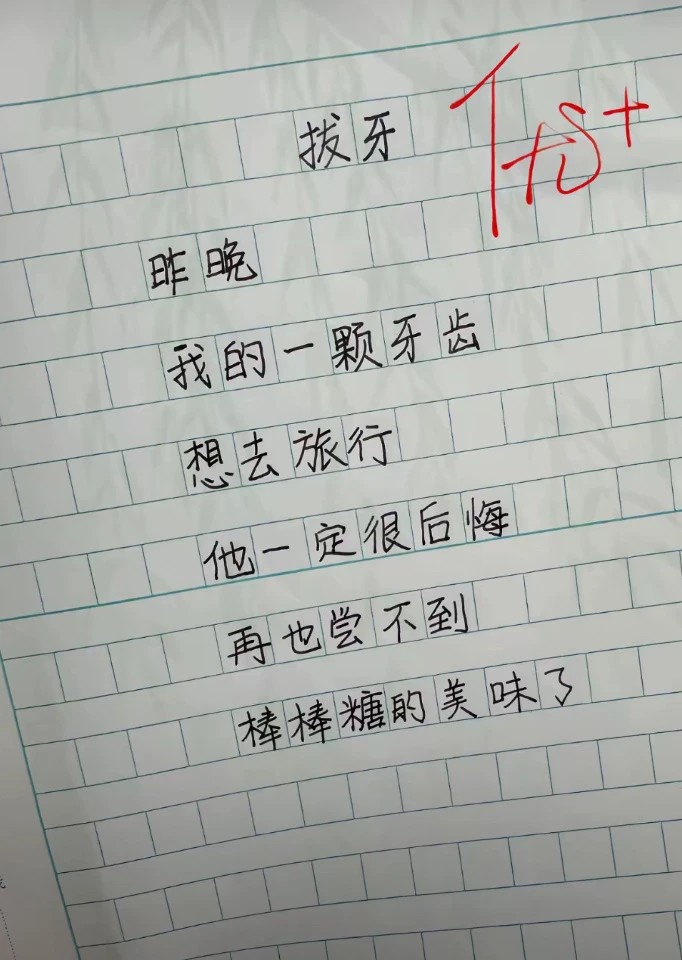 拔牙
优+
昨晚
我的一颗牙齿
想去旅行
他一定很后悔
再也尝不到
棒棒糖的美味了